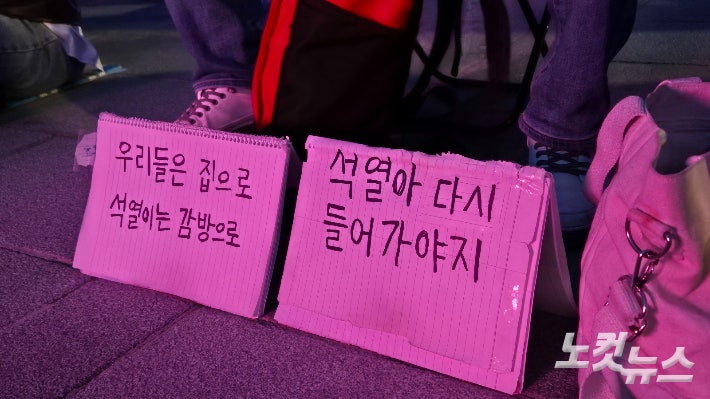 우리들은 집으로
석열이는 감방으로
석열아 다시
들어가야지
노컷뉴스